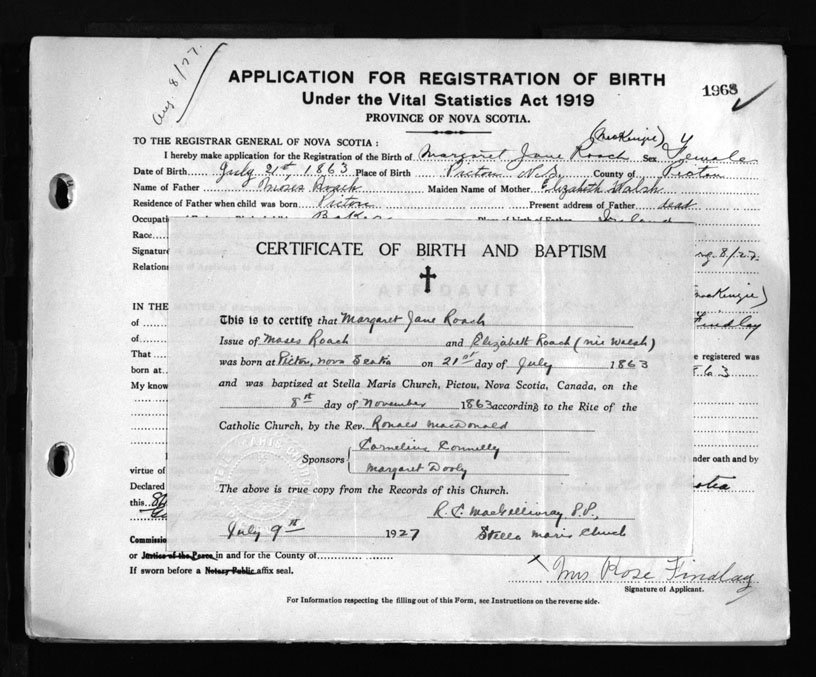 Aug. 8/27.
APPLICATION FOR REGISTRATION OF BIRTH
Under the Vital Statistics Act 1919
PROVINCE OF NOVA SCOTIA.
1968
TO THE REGISTRAR GENERAL OF NOVA SCOTIA:
(MacKenzie)
I hereby make application for the Registration of the Birth of Margaret Jane Roach Sex Female
Date of Birth July 21st, 1863 Place of Birth Pictou County of Pictou
Name of Father Moses Roach Maiden Name of Mother Elizabeth Walsh
Residence of Father when child was born Pictou Present address of Father dead
Race
8/27
CERTIFICATE OF BIRTH AND BAPTISM
IN THE
of
of
That
born at
My know
Findlay
e registered was
This is to certify that Margaret Jane Roach
Issue of Moses Roach and Elizabeth Roach (nie Walsh)
was born at Pictou, Nova Scotia on 21st day of July 1863
and was baptized at Stella Maris Church, Pictou, Nova Scotia, Canada, on the
8th day of November 1863 according to the Rite of the
Catholic Church, by the Rev. Ronald MacDonald
Sponsors Cornelius Connelly
Margaret Dooly
The above is true copy from the Records of this Church.
R. C. MacGillivray P.P.,
July 9th 1927 Stella Maris Church
nder oath and by
virtue of
Declared
this
Commissio
or Justice of the Peace in and for the County of
If sworn before a Notary Public affix seal.
Mrs Rose Findlay
Signature of Applicant.
For Information respecting the filling out of this Form, see Instructions on the reverse side.